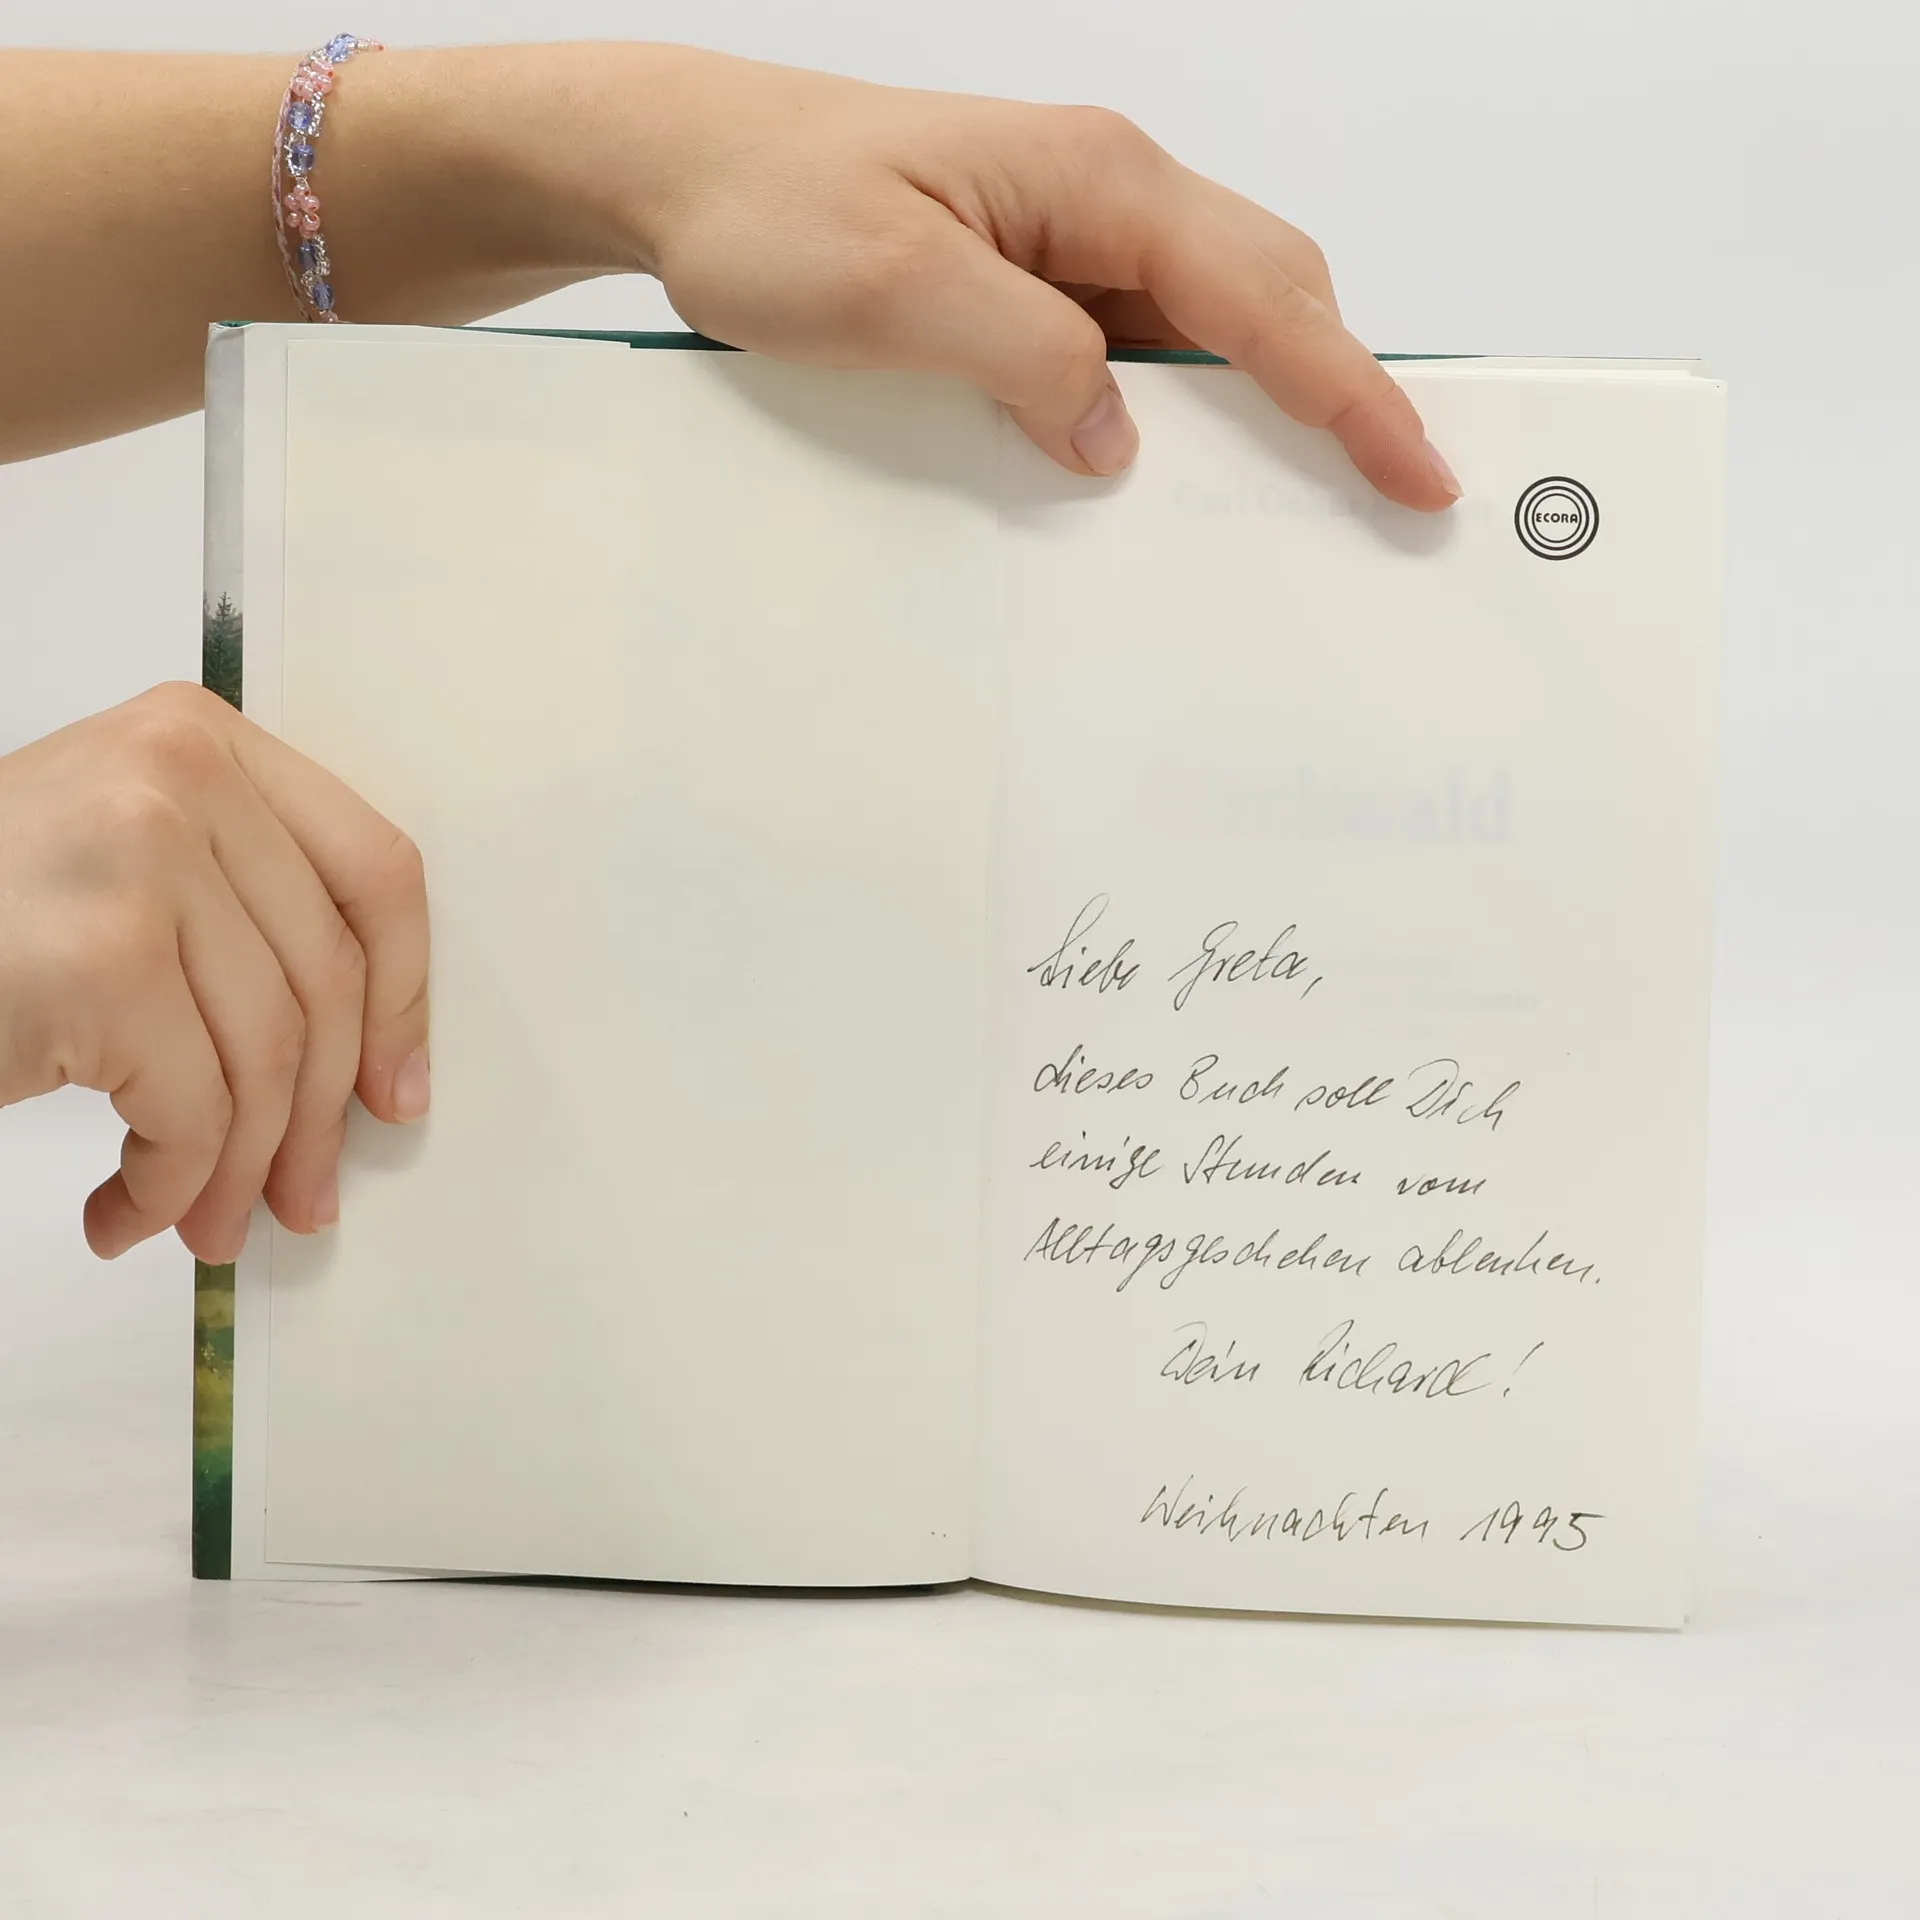 ECORA
Liebe Greta,
dieses Buch soll Dich
einige Stunden vom
Alltagsgeschehen ablenken.
Dein Richard!
Weihnachten 1995